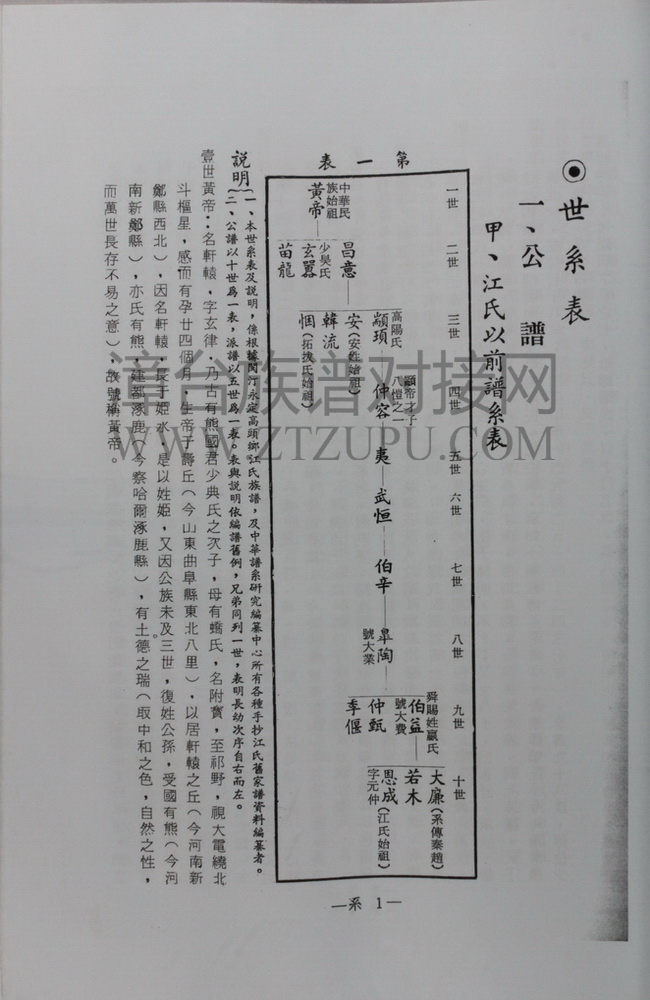 ◉世系表
一、公譜
甲、江氏以前譜系表
第一表
一世 二世 三世 四世 五世 六世 七世 八世 九世 十世
中華民族始祖
黃帝
昌意
少昊氏
玄囂
苗龍
高陽氏
顓頊
安(安姓始祖)
韓流
悃(拓拔氏始祖)
顓帝才子八愷之一
仲容
夷
武恒
伯辛
臯陶
號大業
舜賜姓嬴氏
伯益
號大費
仲甄
季偃
大廉(系傳秦趙)
若木
恩成(江氏始祖)
字元仲
說明
一、本世系表及說明,係根據閩汀永定高頭鄉江氏族譜,及中華譜系研究編纂中心所有各種手抄江氏舊家譜資料編纂者。
二、公譜以十世爲一表,派譜以五世爲一表。表與說明依編譜舊例,兄弟同列一世,表明長幼次序自右而左。
壹世黃帝:名軒轅,字玄律,乃古有熊國君少典氏之次子,母有蟜氏,名附寶,至祁野,視大電繞北
斗樞星,感而有孕廿四個月,生帝于壽丘(今山東曲阜縣東北八里),以居軒轅之丘(今河南新
鄭縣西北),因名軒轅,長于姬水,是以姓姬,又因公族未及三世,復姓公孫,受國有熊(今河
南新鄭縣),亦氏有熊,建都涿鹿(今察哈爾涿鹿縣),有土德之瑞(取中和之色,自然之性,
而萬世長存不易之意),故號稱黃帝。
—系 1—
族谱对接网
WWW.ZTZUPU.COM